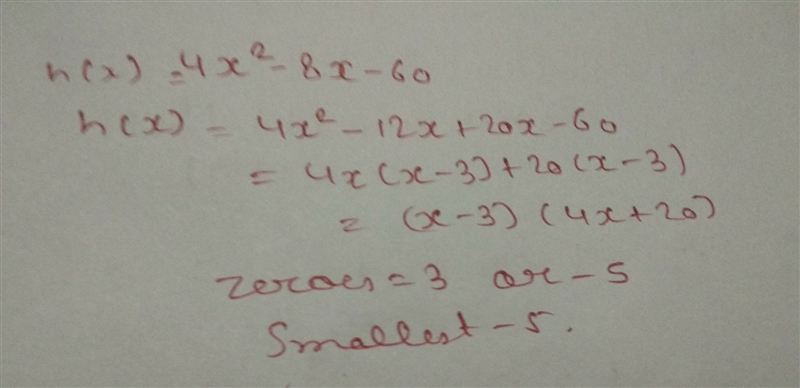 h(x) = 4x² - 8x - 60
h(x) = 4x² - 12x + 20x - 60
= 4x(x-3) + 20(x-3)
= (x-3) (4x+20)
zeroes = 3 or - 5
Smallest - 5.